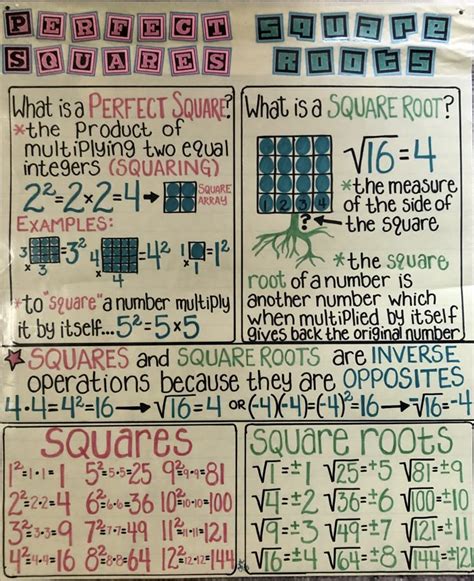 PERFECT SQUARES
SQUARE ROOTS
What is a PERFECT SQUARE?
*the Product of
multiplying two equal
integers (SQUARING)
2²=2×2=4→
SQUARE
ARRAY
EXAMPLES:
3 × 3 =3²
4 × 4 =4²
1 × 1 =1²
*to "square" a number multiply
it by itself...5²=5×5
What is a SQUARE ROOT?
1 2 3 4
?
√16=4
*the measure
of the side of
the square
*the square
root of a number is
another number which
when multiplied by itself
gives back the original number
SQUARES and SQUARE ROOTS are INVERSE
operations because they are OPPOSITES
4·4=4²=16→√16=4 OR (-4)(-4)=(-4)²=16→√16=-4
SQUARES
1²=1·1=1 5²=5·5=25 9²=9·9=81
2²=2·2=4 6²=6·6=36 10²=10·10=100
3²=3·3=9 7²=7·7=49 11²=11·11=121
4²=4·4=16 8²=8·8=64 12²=12·12=144
square roots
√1=±1 √25=±5 √81=±9
√4=±2 √36=±6 √100=±10
√9=±3 √49=±7 √121=±11
√16=±4 √64=±8 √144=±12